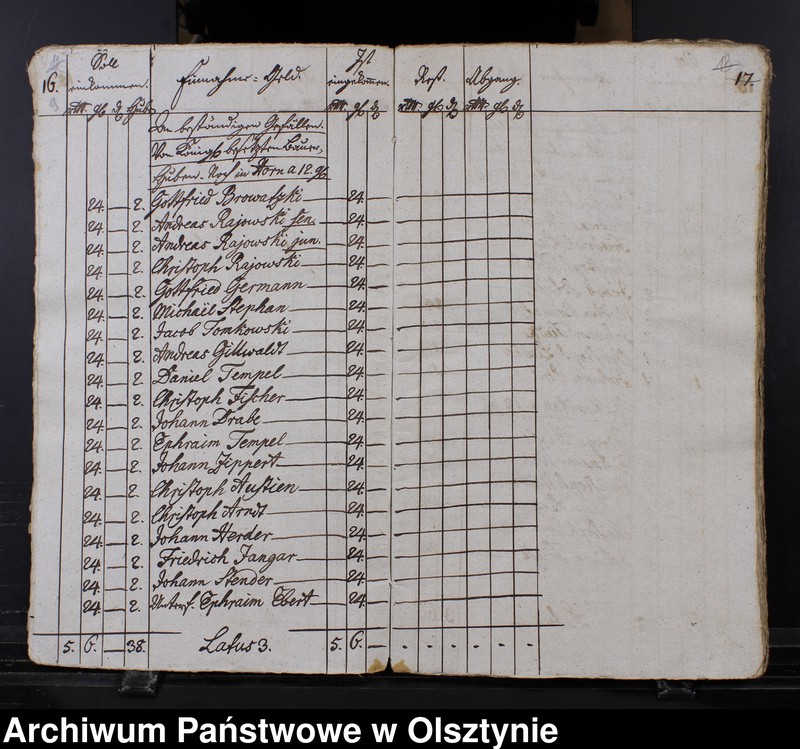 16. Soll einkommen. Einnahme = Geld. Ist eingekommen. Rest. Abgang. 17.
An beständigen Gefällen.
Von Königl. besetzten Bauer,
Huben. Noch in Horn a 12. gl.
24. — 2. Gottfried Browatzki — 24. —
24. — 2. Andreas Rajowski sen. — 24. —
24. — 2. Andreas Rajowski jun. — 24. —
24. — 2. Christoph Rajowski — 24. —
24. — 2. Gottfried Germann — 24. —
24. — 2. Michaël Stephan — 24. —
24. — 2. Jacob Tomkowski — 24. —
24. — 2. Andreas Gillwaldt — 24. —
24. — 2. Daniel Tempel — 24. —
24. — 2. Christoph Fischer — 24. —
24. — 2. Johann Drabe — 24. —
24. — 2. Ephraim Tempel — 24. —
24. — 2. Johann Zippert — 24. —
24. — 2. Christoph Austien — 24. —
24. — 2. Christoph Arndt — 24. —
24. — 2. Johann Herder — 24. —
24. — 2. Friedrich Jangar — 24. —
24. — 2. Johann Stender — 24. —
24. — 2. Ephraim Ebert — 24. —
5. 6. — 38. Latus 3. 5. 6. —
Archiwum Państwowe w Olsztynie